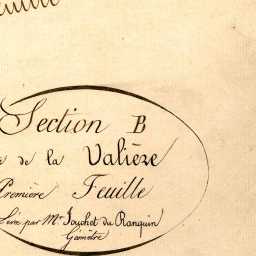 Section B
de la Valièze
Première Feuille
Levée par Mr. Souchet du Ranquin
Géomètre